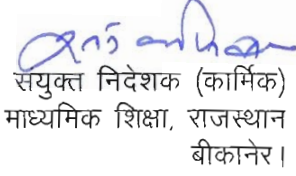 संयुक्त निदेशक (कार्मिक)
माध्यमिक शिक्षा, राजस्थान
बीकानेर।